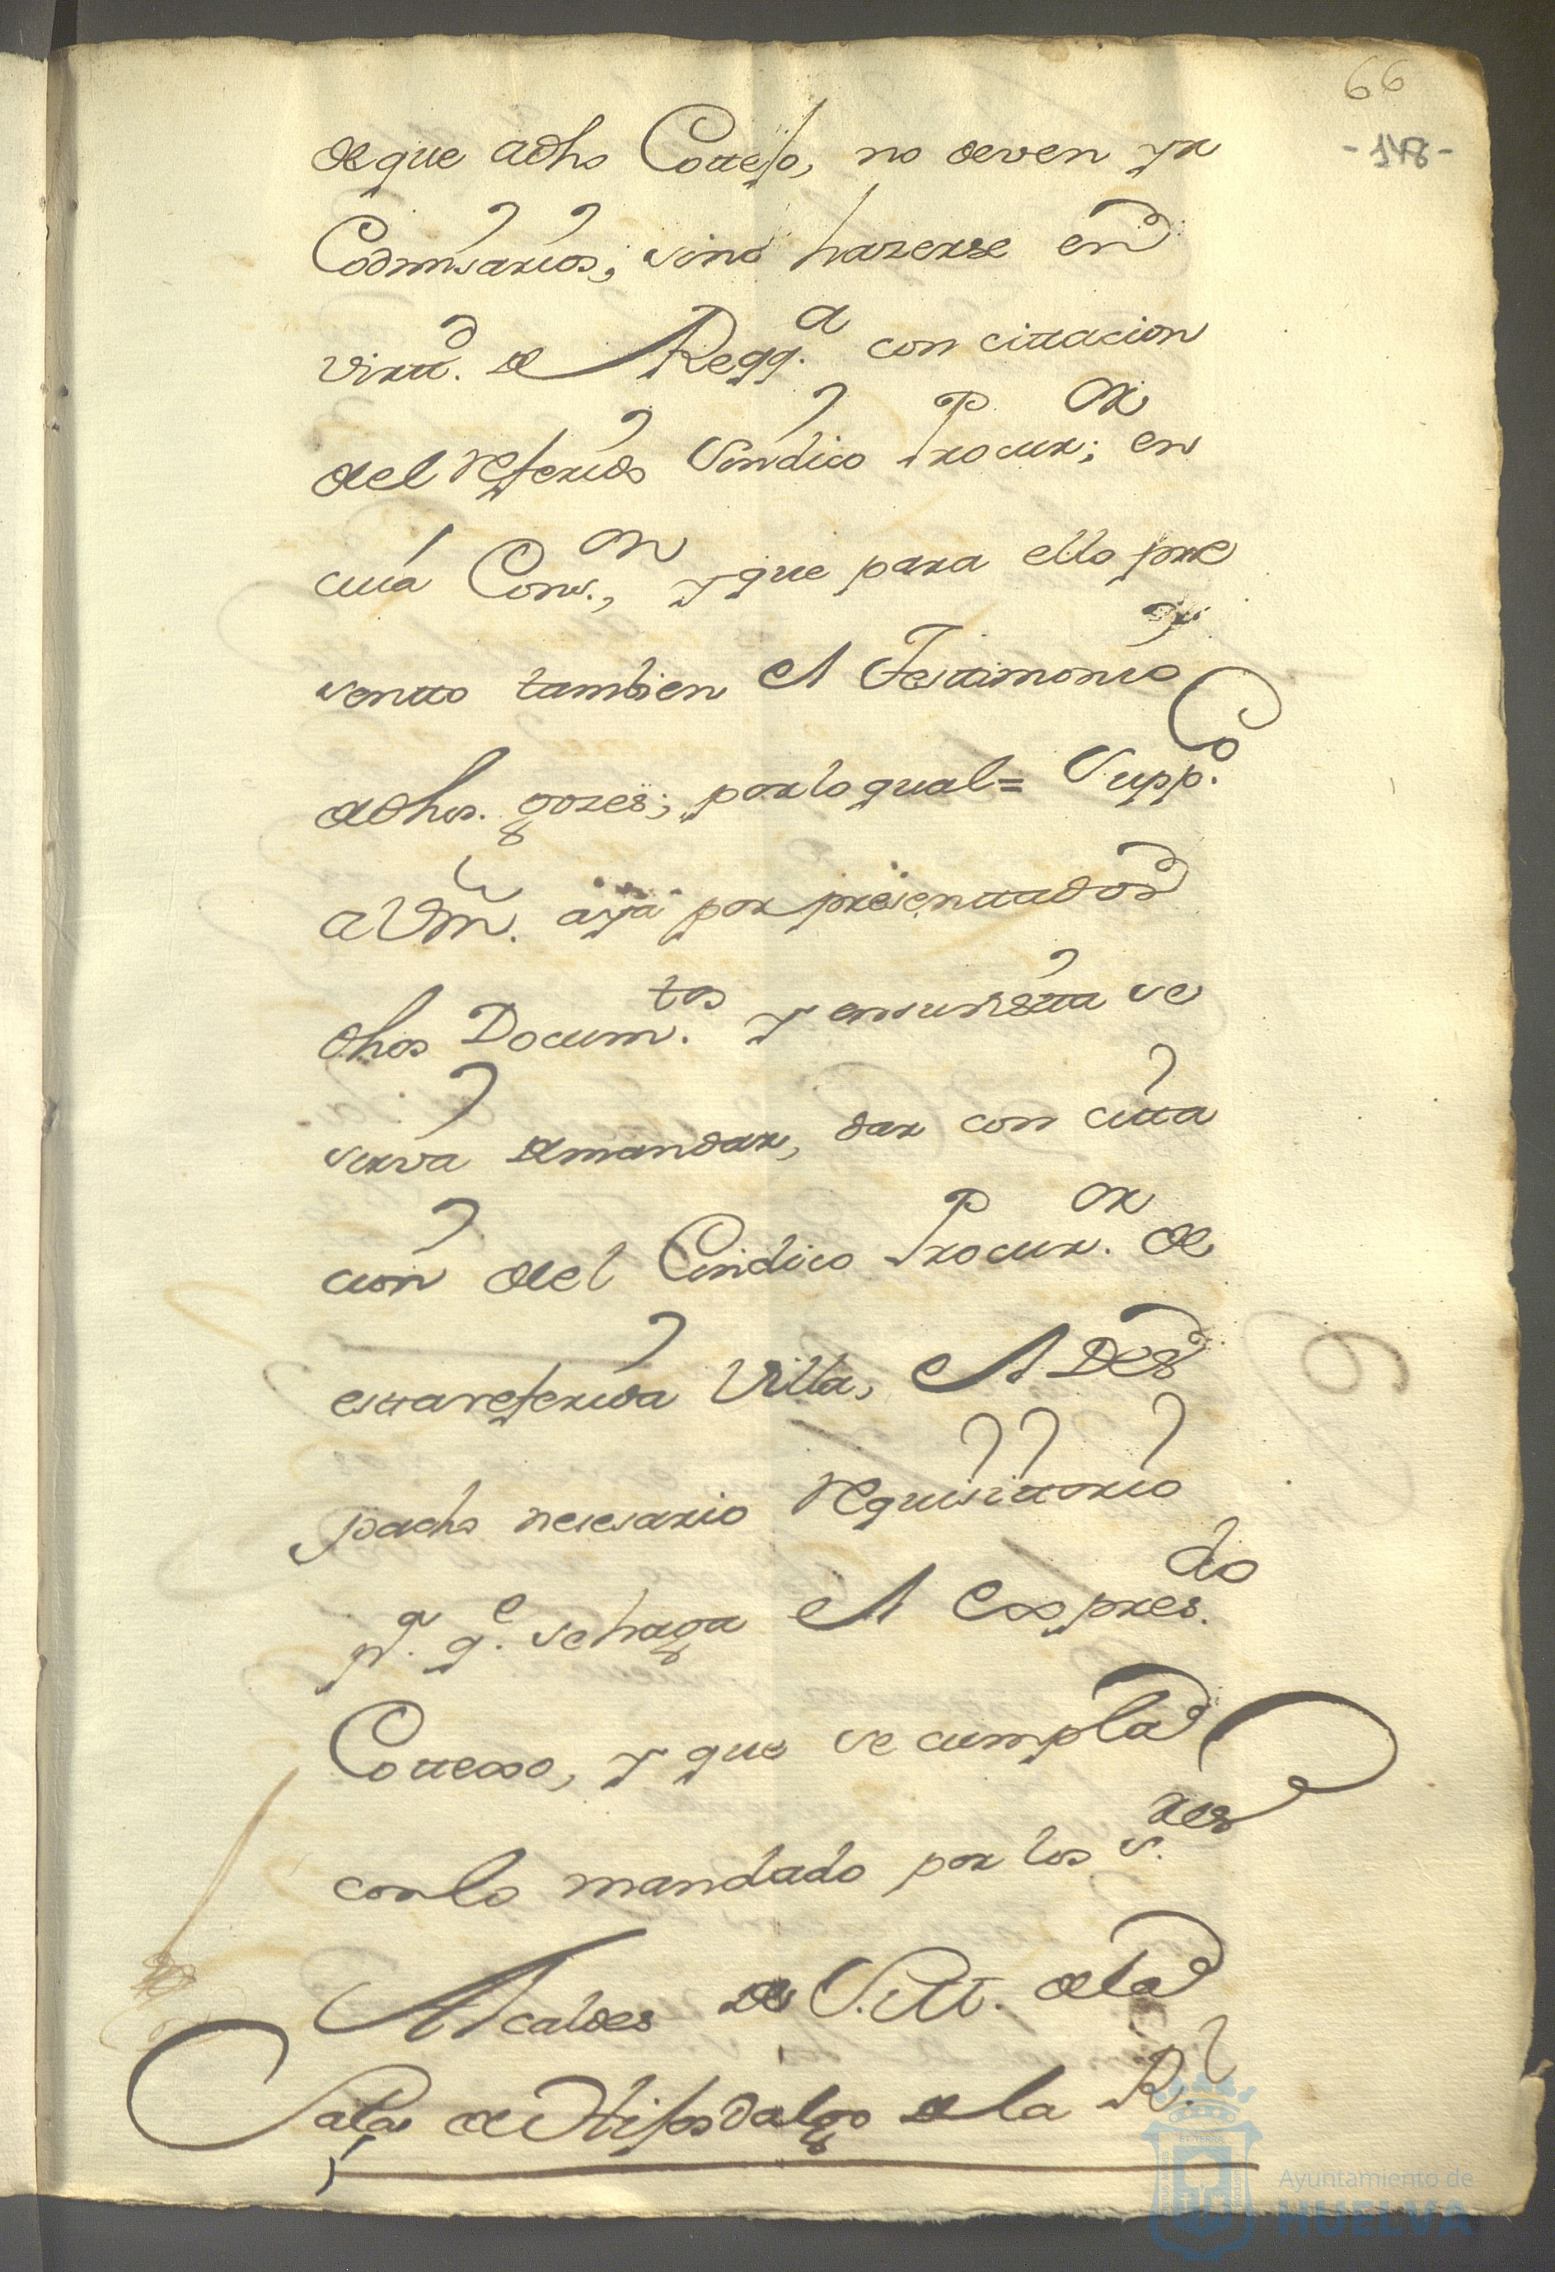 66
-148-
de que adho Cottejo, no deven yr
Comisarios; sino hazerse en
virttd. de Reqq.a con cittacion
del referido Sindico Procur.or; en
cuia Conf.on, y que para ello pre
sentto tambien el Testtimonio
de dhos. gozes; por lo qual = Supp.co
a Vm. aya por presenttados
dhos Docum.tos y en su vistta se
sirva de mandar, dar con citta
cion del Cindico Procur.or de
estta referida Villa, el Des
pacho nesesario requisittorio
p.a q.e se haga el Expres.do
Cottexo, y que se cumpla
con lo mandado por los s.res
Alcaldes de S.M. de la
Sala de Hijosdalgo de la R.l
Ayuntamiento de
HUELVA